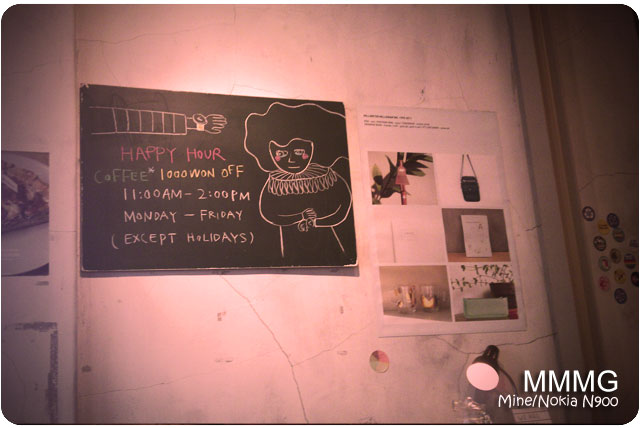 HAPPY HOUR
COFFEE* 1000WON OFF
11:00AM - 2:00PM
MONDAY - FRIDAY
(EXCEPT HOLIDAYS)
MMMG
Mine/Nokia N900